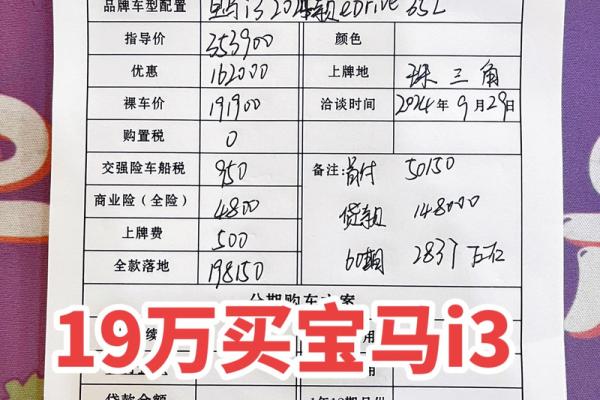 品牌车型配置 宝马i3 2024款eDrive 35L
指导价 353900 颜色
优惠 162000 上牌地 珠三角
裸车价 191900 洽谈时间 2024年9月29日
购置税 0
交强险车船税 950 备注: 首付 50150
商业险（全险） 4800 贷款 148000
上牌费 500 60期 2837
全款落地 198150
分期购车方案
19万买宝马i3
贷款金额